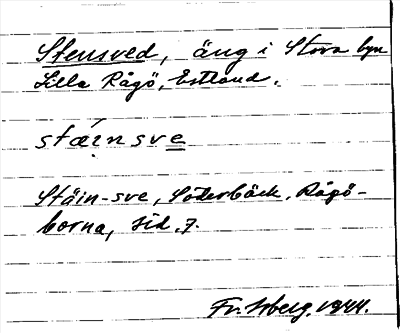 Stensved, äng i Stora byn
Lilla Rågö, Estland.
stǽi̯nsve
Stäin-sve, Söderbäck, Rågö-
borna, sid. 7.
1944.